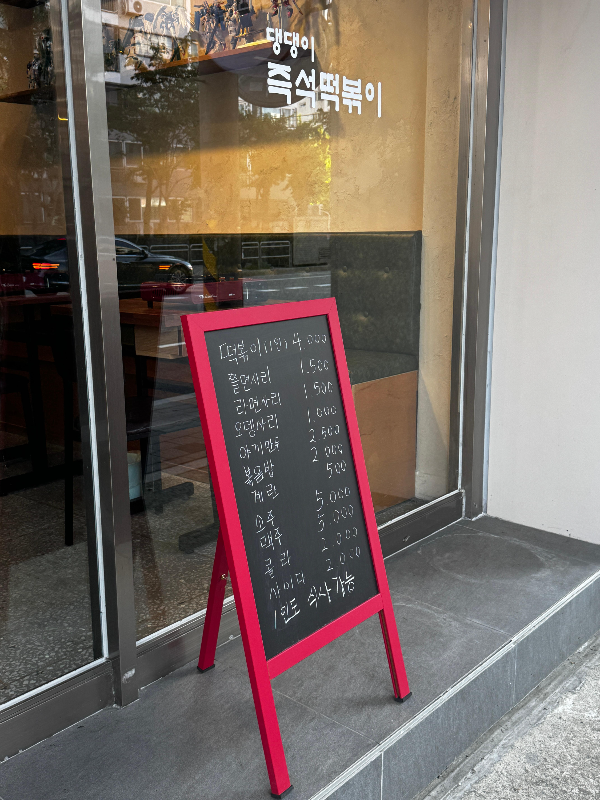 댕댕이
즉석떡볶이
떡볶이(1인) 4.000
쫄면사리 1.500
라면사리 1.500
오뎅사리 1.000
야끼만두 2.500
볶음밥 2.000
계란 500
소주 5.000
맥주 5.000
콜라 2.000
사이다 2.000
1인도 식사 가능